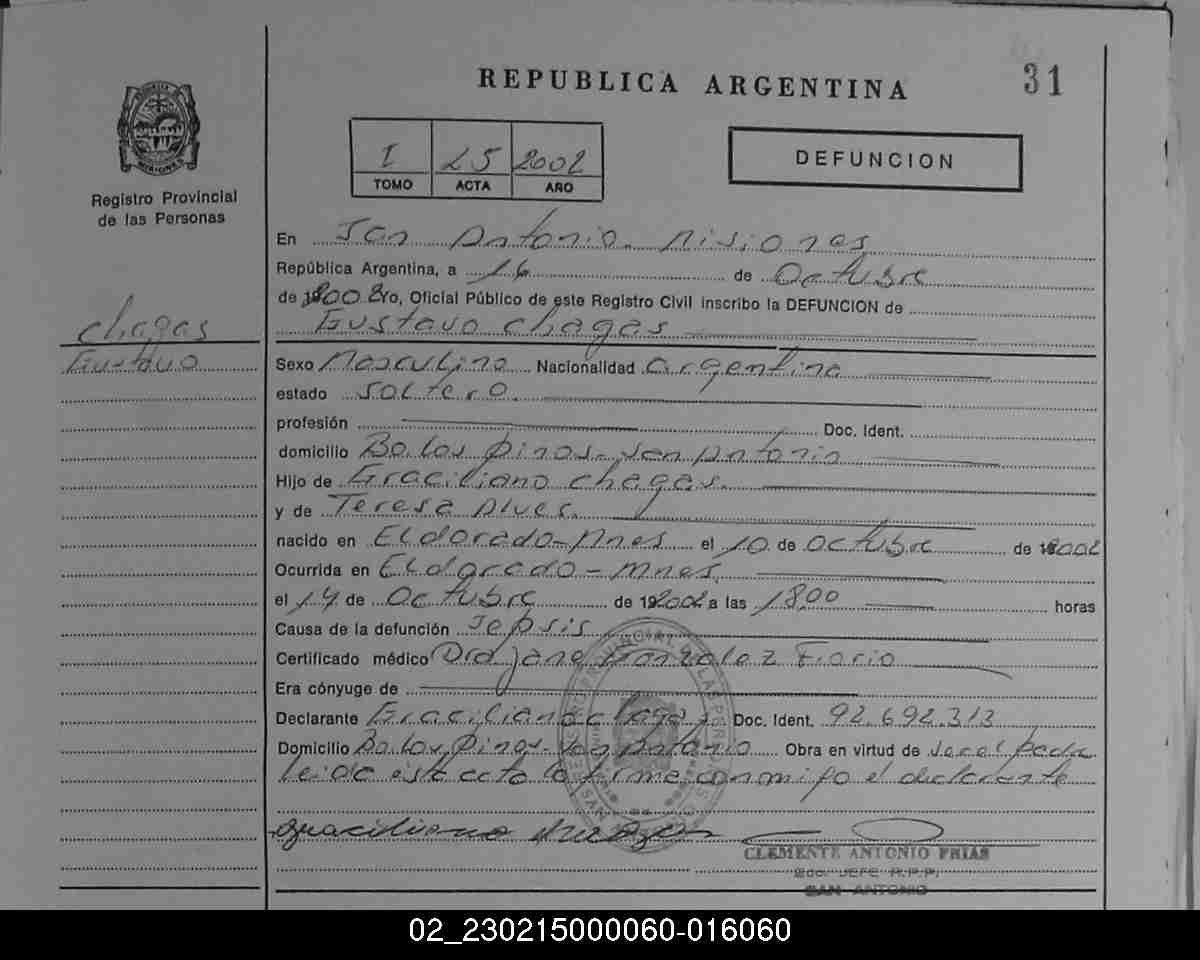 REPUBLICA ARGENTINA
31
I 25 2002
TOMO ACTA AÑO
DEFUNCION
Registro Provincial
de las Personas
Chagas
Gustavo
En San Antonio. Misiones
República Argentina, a 16 de Octubre
de 2002 yo, Oficial Público de este Registro Civil inscribo la DEFUNCION de
Gustavo Chagas
Sexo Masculino Nacionalidad Argentina
estado Soltero.
profesión Doc. Ident.
domicilio Bo. Los Pinos - San Antonio
Hijo de Graciliano Chagas.
y de Teresa Alves.
nacido en Eldorado - Mnes el 10 de Octubre de 2002
Ocurrida en Eldorado - Mnes.
el 14 de Octubre de 2002 a las 18.00 horas
Causa de la defunción Sepsis
Certificado médico Dra Jane Gonzalez Fiorio
Era cónyuge de
Declarante Graciliano Chagas Doc. Ident. 92.692.313
Domicilio Bo. Los Pinos - San Antonio Obra en virtud de
leida esta acta la firma conmigo el declarante
graciliano
CLEMENTE ANTONIO FRIAS
2do. JEFE R.P.P.
SAN ANTONIO
02_230215000060-016060